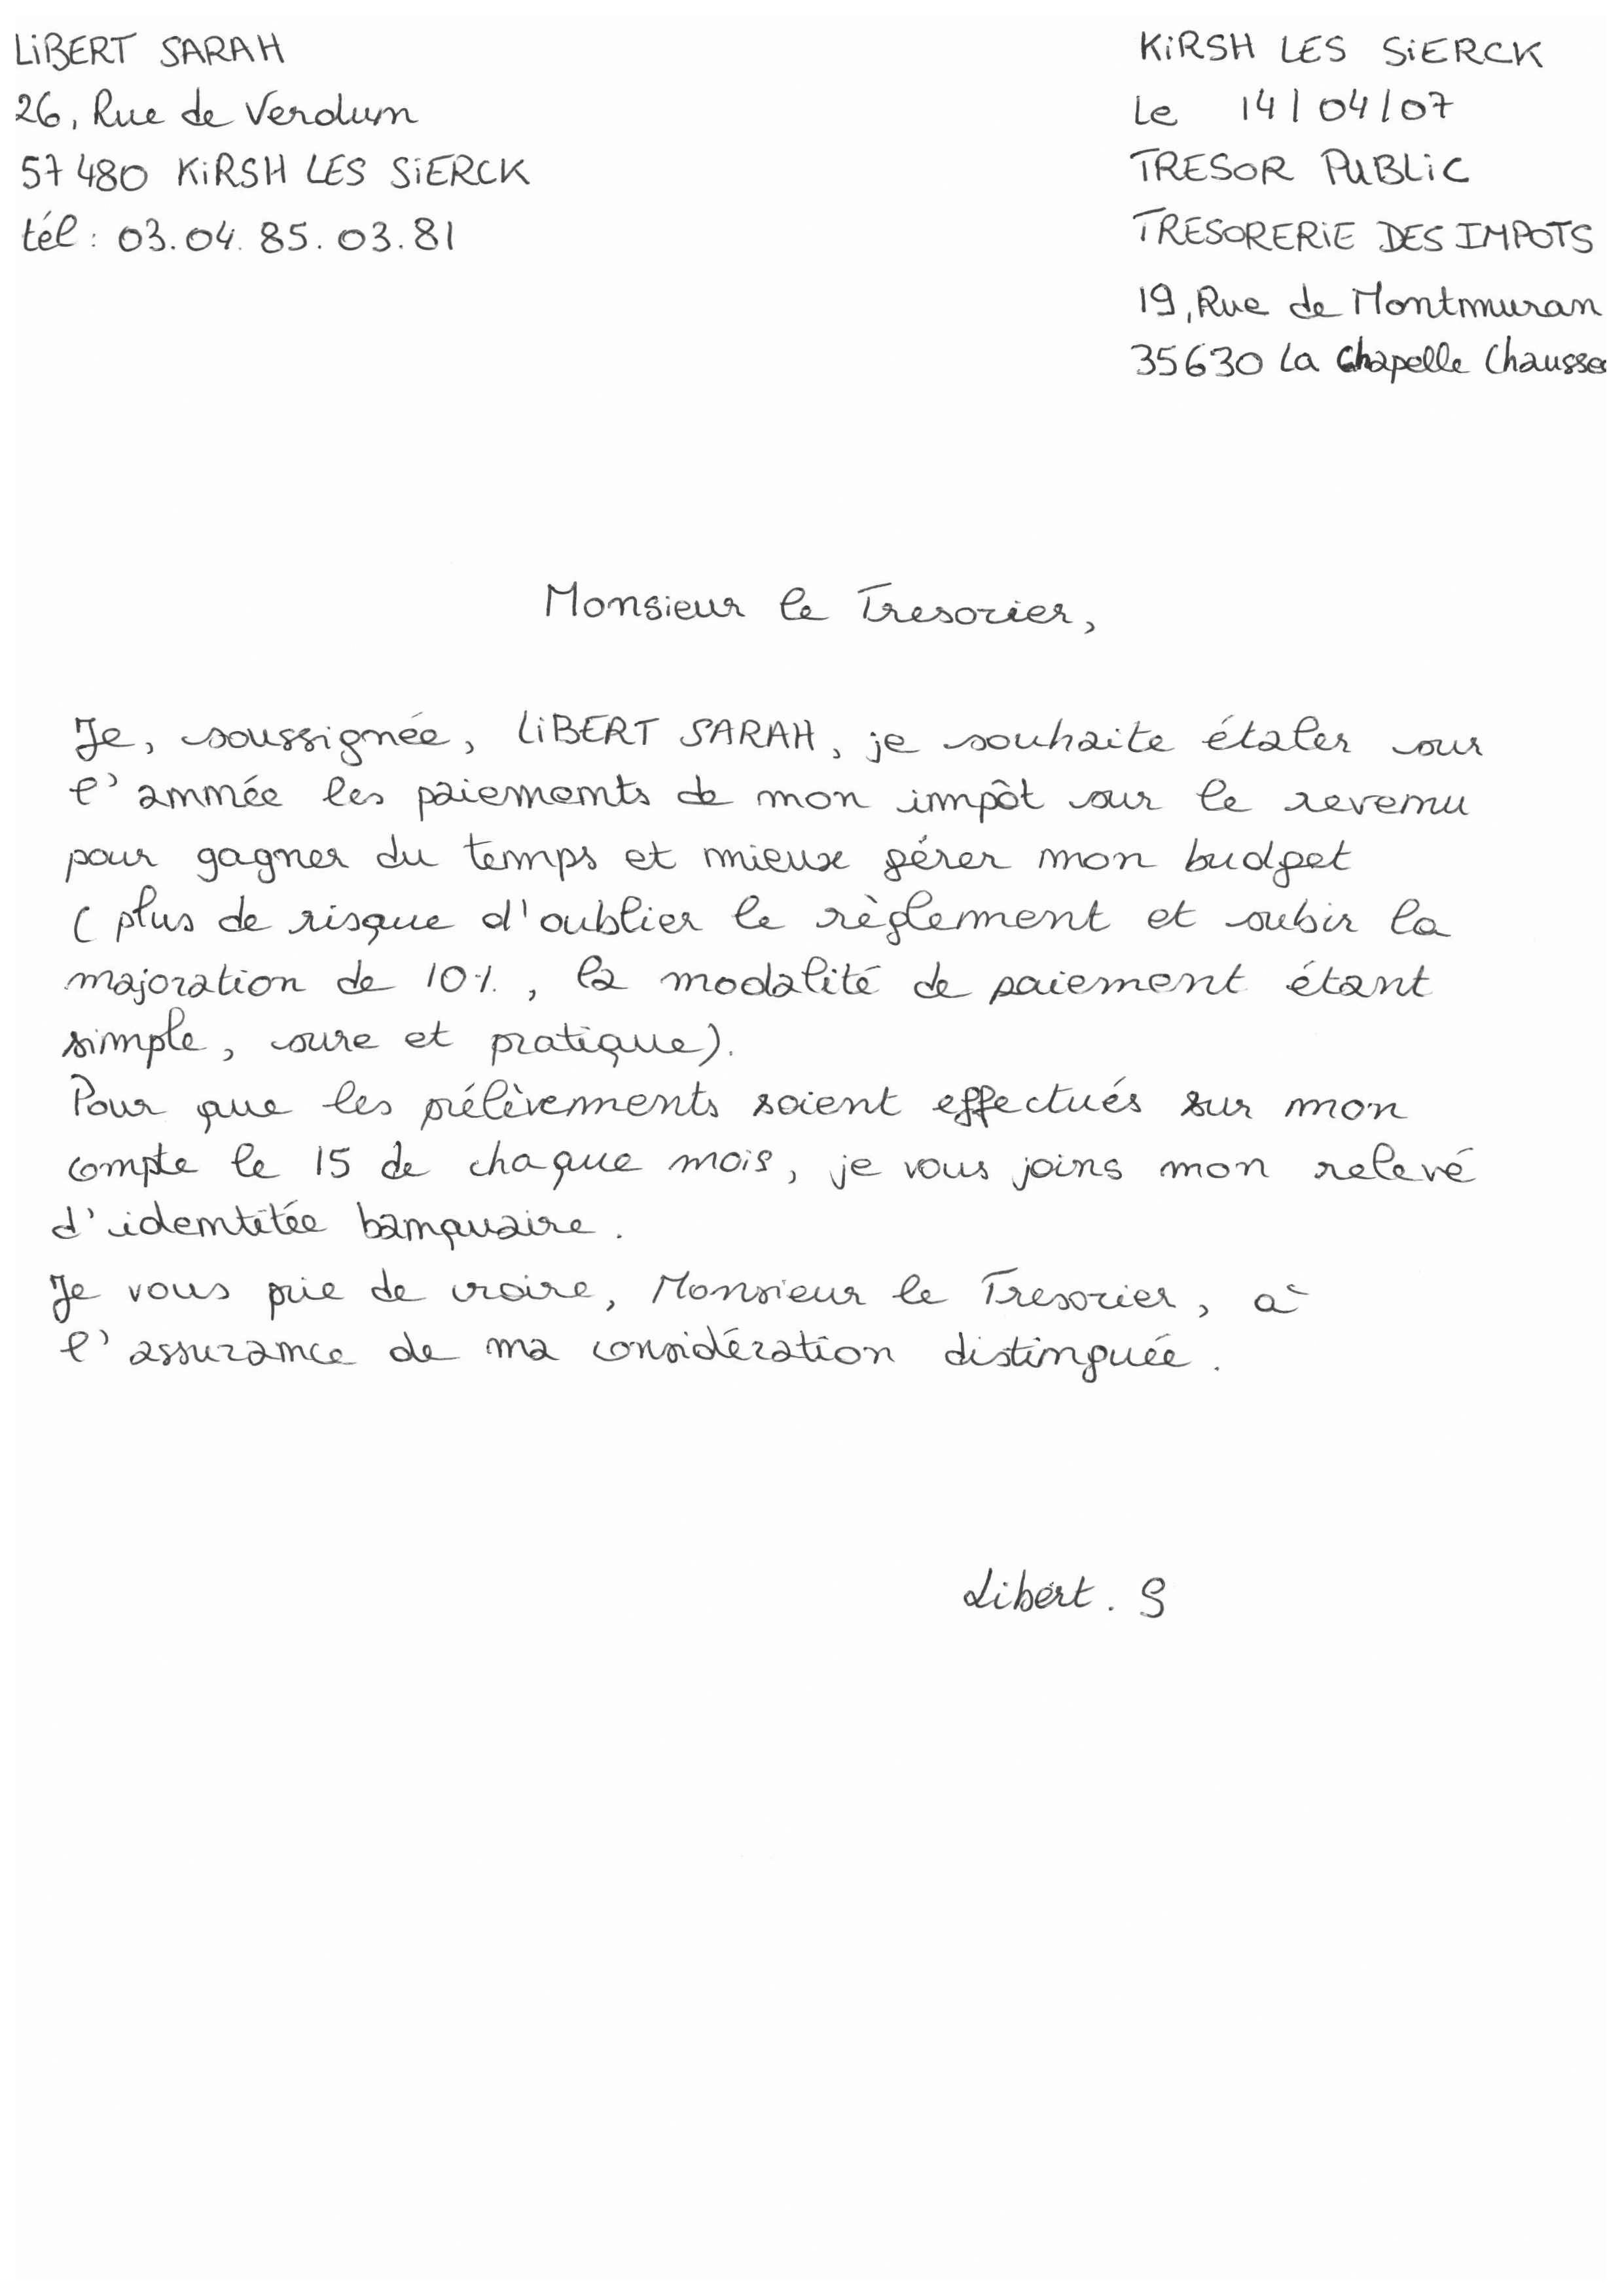 LIBERT SARAH
26, Rue de Verdun
57480 KIRSH LES SIERCK
tél : 03.04.85.03.81
KIRSH LES SIERCK
Le 14/04/07
TRESOR PUBLIC
TRESORERIE DES IMPOTS
19, Rue de Montmuran
35630 La Chapelle Chaussee
Monsieur le Tresorier,
Je, soussignée, LIBERT SARAH, je souhaite étaler sur
l'année les paiements de mon impôt sur le revenu
pour gagner du temps et mieux gérer mon budget
( plus de risque d'oublier le règlement et subir la
majoration de 10%, la modalité de paiement étant
simple, sure et pratique).
Pour que les prélèvements soient effectués sur mon
compte le 15 de chaque mois, je vous joins mon relevé
d'identitée banquaire.
Je vous prie de croire, Monsieur le Tresorier, à
l'assurance de ma considération distinguée.
Libert. S